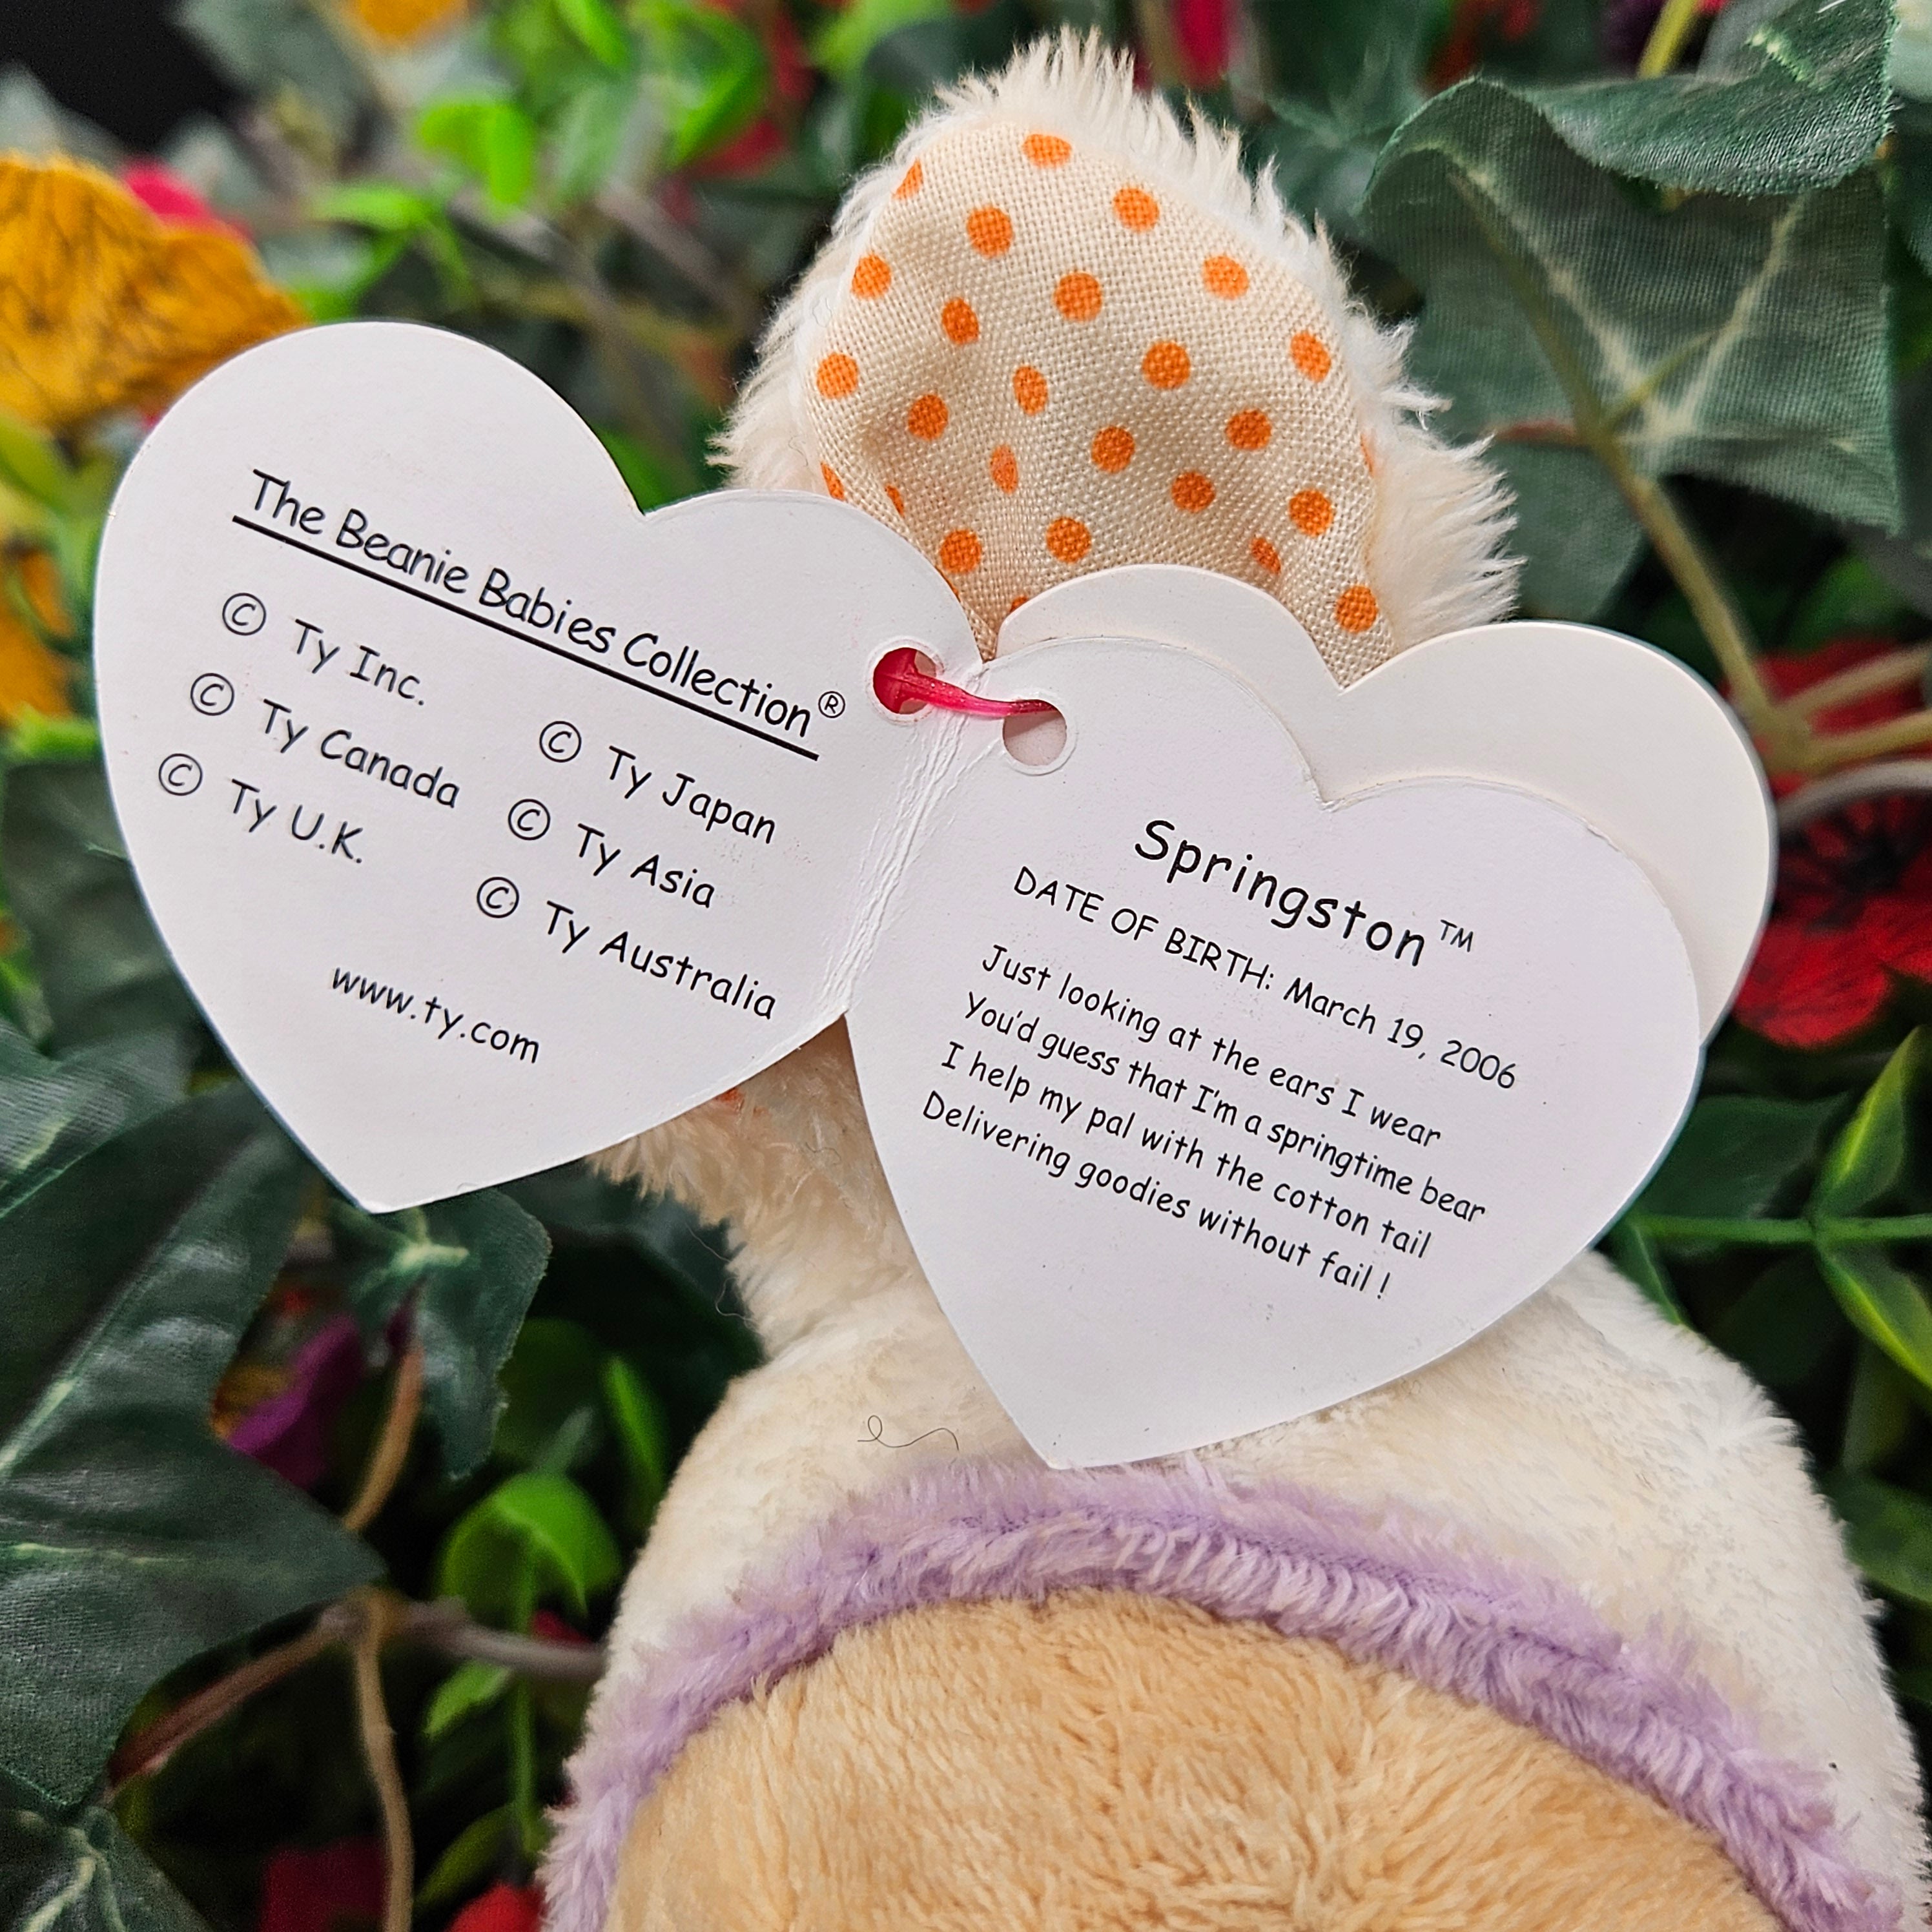 The Beanie Babies Collection®
© Ty Inc.
© Ty Canada
© Ty U.K.
© Ty Japan
© Ty Asia
© Ty Australia
www.ty.com
Springston™
DATE OF BIRTH: March 19, 2006
Just looking at the ears I wear
You'd guess that I'm a springtime bear
I help my pal with the cotton tail
Delivering goodies without fail !